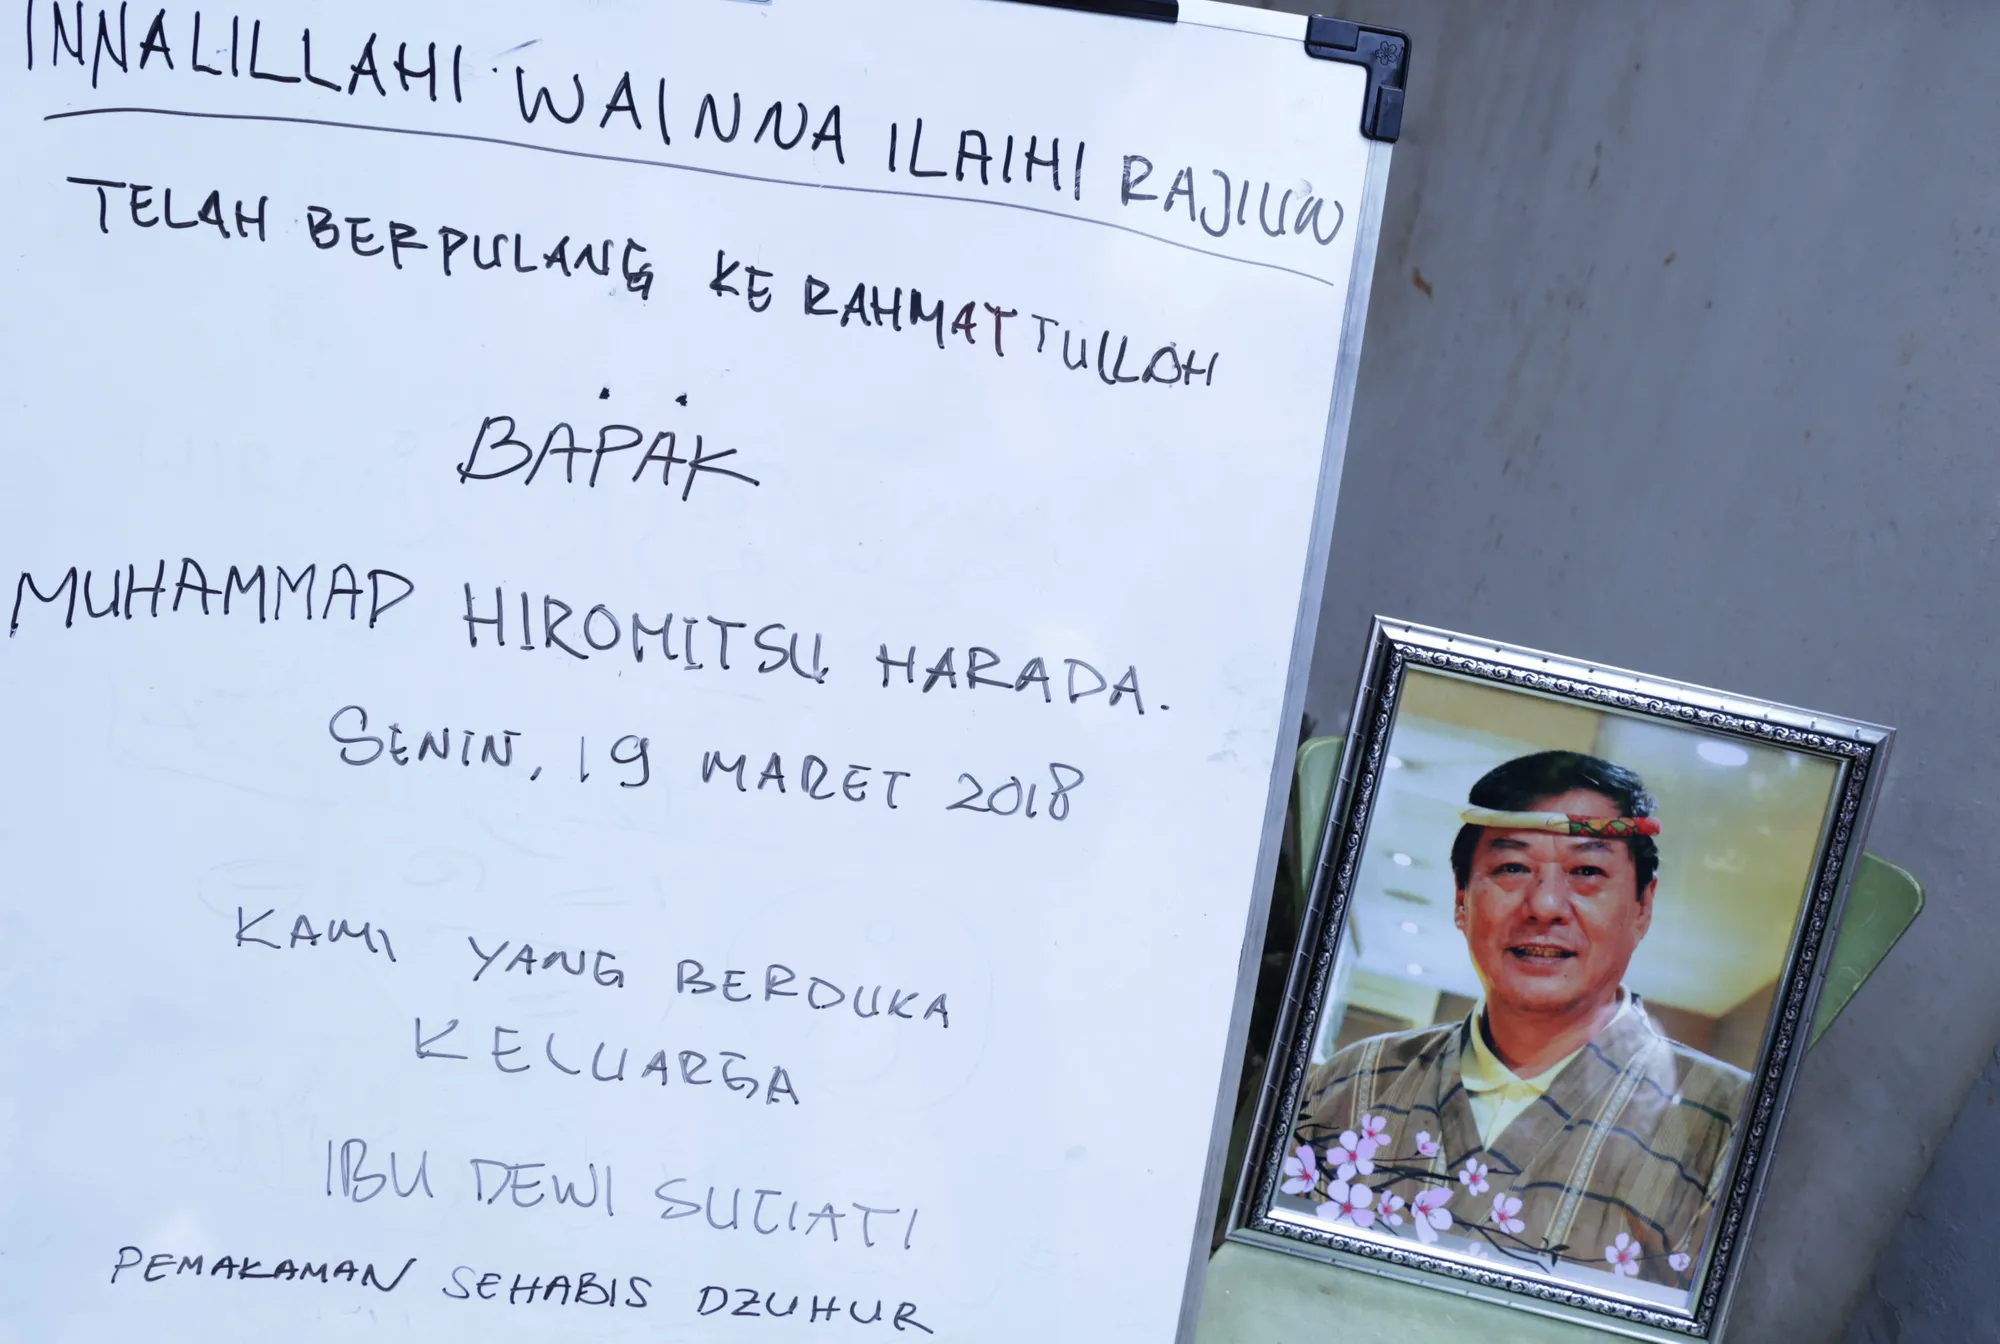 INNALILLAHI WAINNA ILAIHI RAJIUN
TELAH BERPULANG KE RAHMATTULLAH
BAPAK
MUHAMMAD HIROMITSU HARADA.
SENIN, 19 MARET 2018
KAMI YANG BERDUKA
KELUARGA
IBU DEWI SUCIATI
PEMAKAMAN SEHABIS DZUHUR